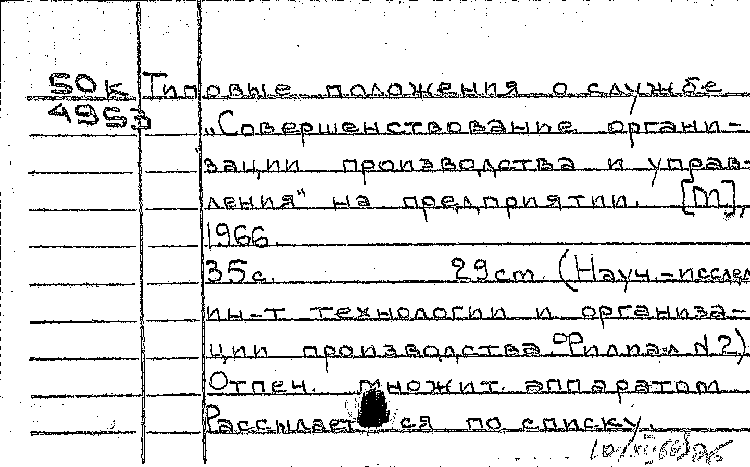 50к Типовые положения о службе
4953
„Совершенствование органи-
зации производства и управ-
ления" на предприятии. [М],
1966.
35с. 29cm (Науч.-исслед
ин-т технологии и организа-
ции производства. Филиал N2)
Отпеч. множит. аппаратом
Рассылается по списку.